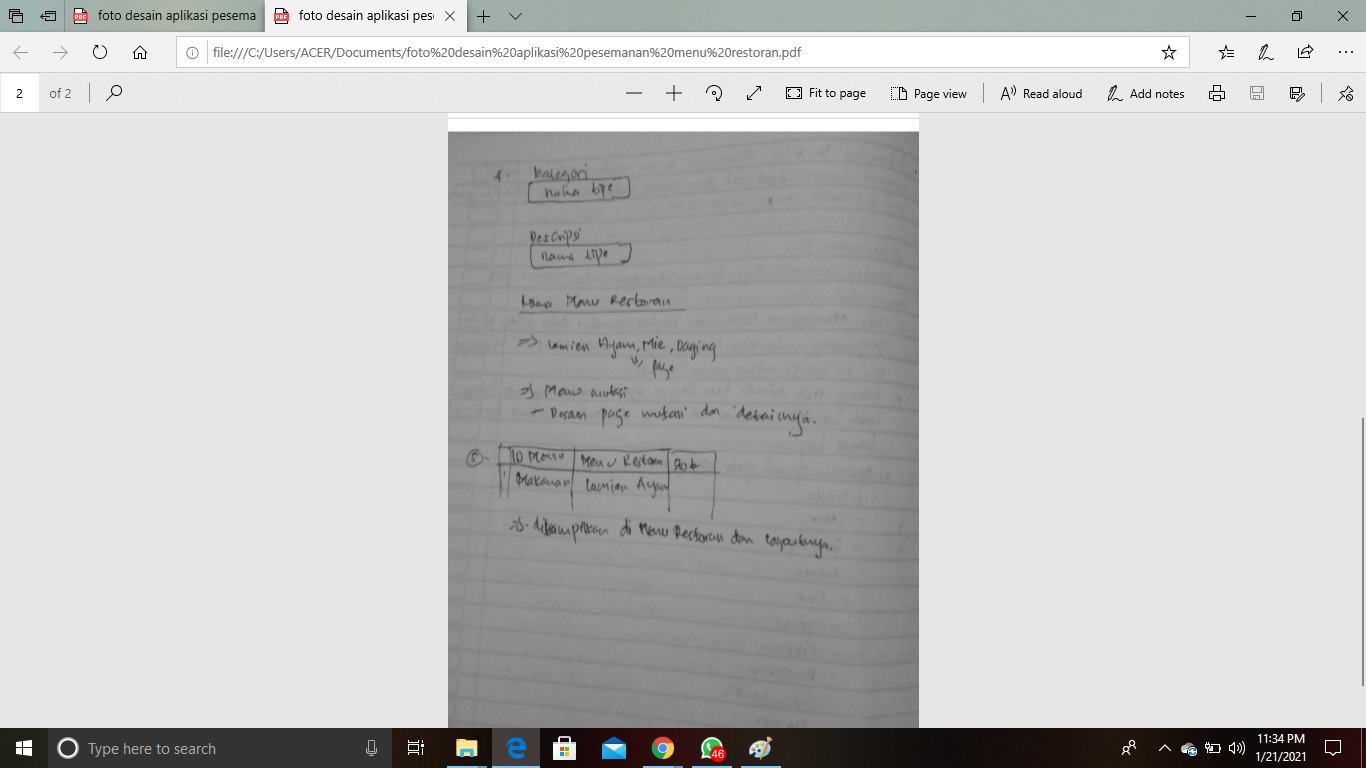 foto desain aplikasi pesema
foto desain aplikasi pes
file:///C:/Users/ACER/Documents/foto%20desain%20aplikasi%20pesemanan%20menu%20restoran.pdf
2 of 2
Fit to page
Page view
Read aloud
Add notes
4. Kategori
nama tipe
Descripsi
nama tipe
Nama Menu Restoran
=> Lamien Ayam, Mie, Daging
page
=> Menu mutasi
- Desain page mutasi dan detailnya.
5. ID Menu Menu Restoran Stok
1 Makanan Lamien Ayam
=> ditampilkan di Menu Restoran dan
Type here to search
46
11:34 PM
1/21/2021